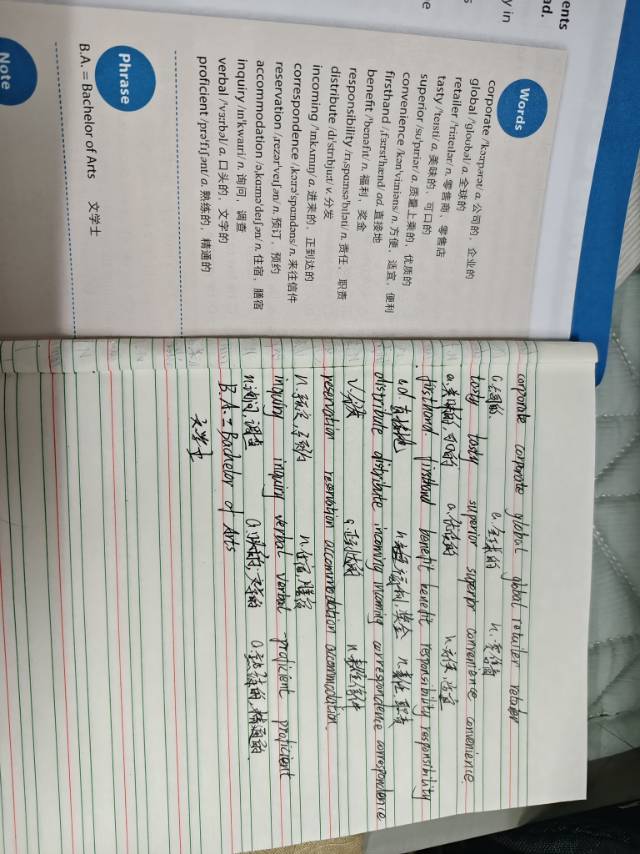 ents
nd.
y in
s
e
Words
corporate /ˈkɔːrpərət/ a. 公司的，企业的
global /ˈɡləʊbəl/ a. 全球的
retailer /ˈriːteɪlər/ n. 零售商，零售店
tasty /ˈteɪsti/ a. 美味的，可口的
superior /suːˈpɪriər/ a. 质量上乘的，优质的
convenience /kənˈviːniəns/ n. 方便，适宜，便利
firsthand /ˌfɜːrstˈhænd/ ad. 直接地
benefit /ˈbenəfɪt/ n. 福利，奖金
responsibility /rɪˌspɑːnsəˈbɪləti/ n. 责任，职责
distribute /dɪˈstrɪbjuːt/ v. 分发
incoming /ˈɪnkʌmɪŋ/ a. 进来的，正到达的
correspondence /ˌkɔːrəˈspɑːndəns/ n. 来往信件
reservation /ˌrezərˈveɪʃən/ n. 预订，预约
accommodation /əˌkɑːməˈdeɪʃən/ n. 住宿，膳宿
inquiry /ɪnˈkwaɪri/ n. 询问，调查
verbal /ˈvɜːrbəl/ a. 口头的，文字的
proficient /prəˈfɪʃənt/ a. 熟练的，精通的
Phrase
B.A. = Bachelor of Arts 文学士
Note
corporate corporate global global retailer retailer
a.公司的 a.全球的 n.零售商
tasty tasty superior superior convenience convenience
a.美味的,可口的 a.优质的 n.方便,适宜
firsthand firsthand benefit benefit responsibility responsibility
ad 直接地 n.福利,奖金 n.责任,职责
distribute distribute incoming incoming correspondence correspondence
v.分发 a.正到达的 n.来往信件
reservation reservation accommodation accommodation
n.预定,预约 n.住宿,膳宿
inquiry inquiry verbal verbal proficient proficient
n.询问,调查 a.口头的,文字的 a.熟练的,精通的
B.A. = Bachelor of Arts
文学士